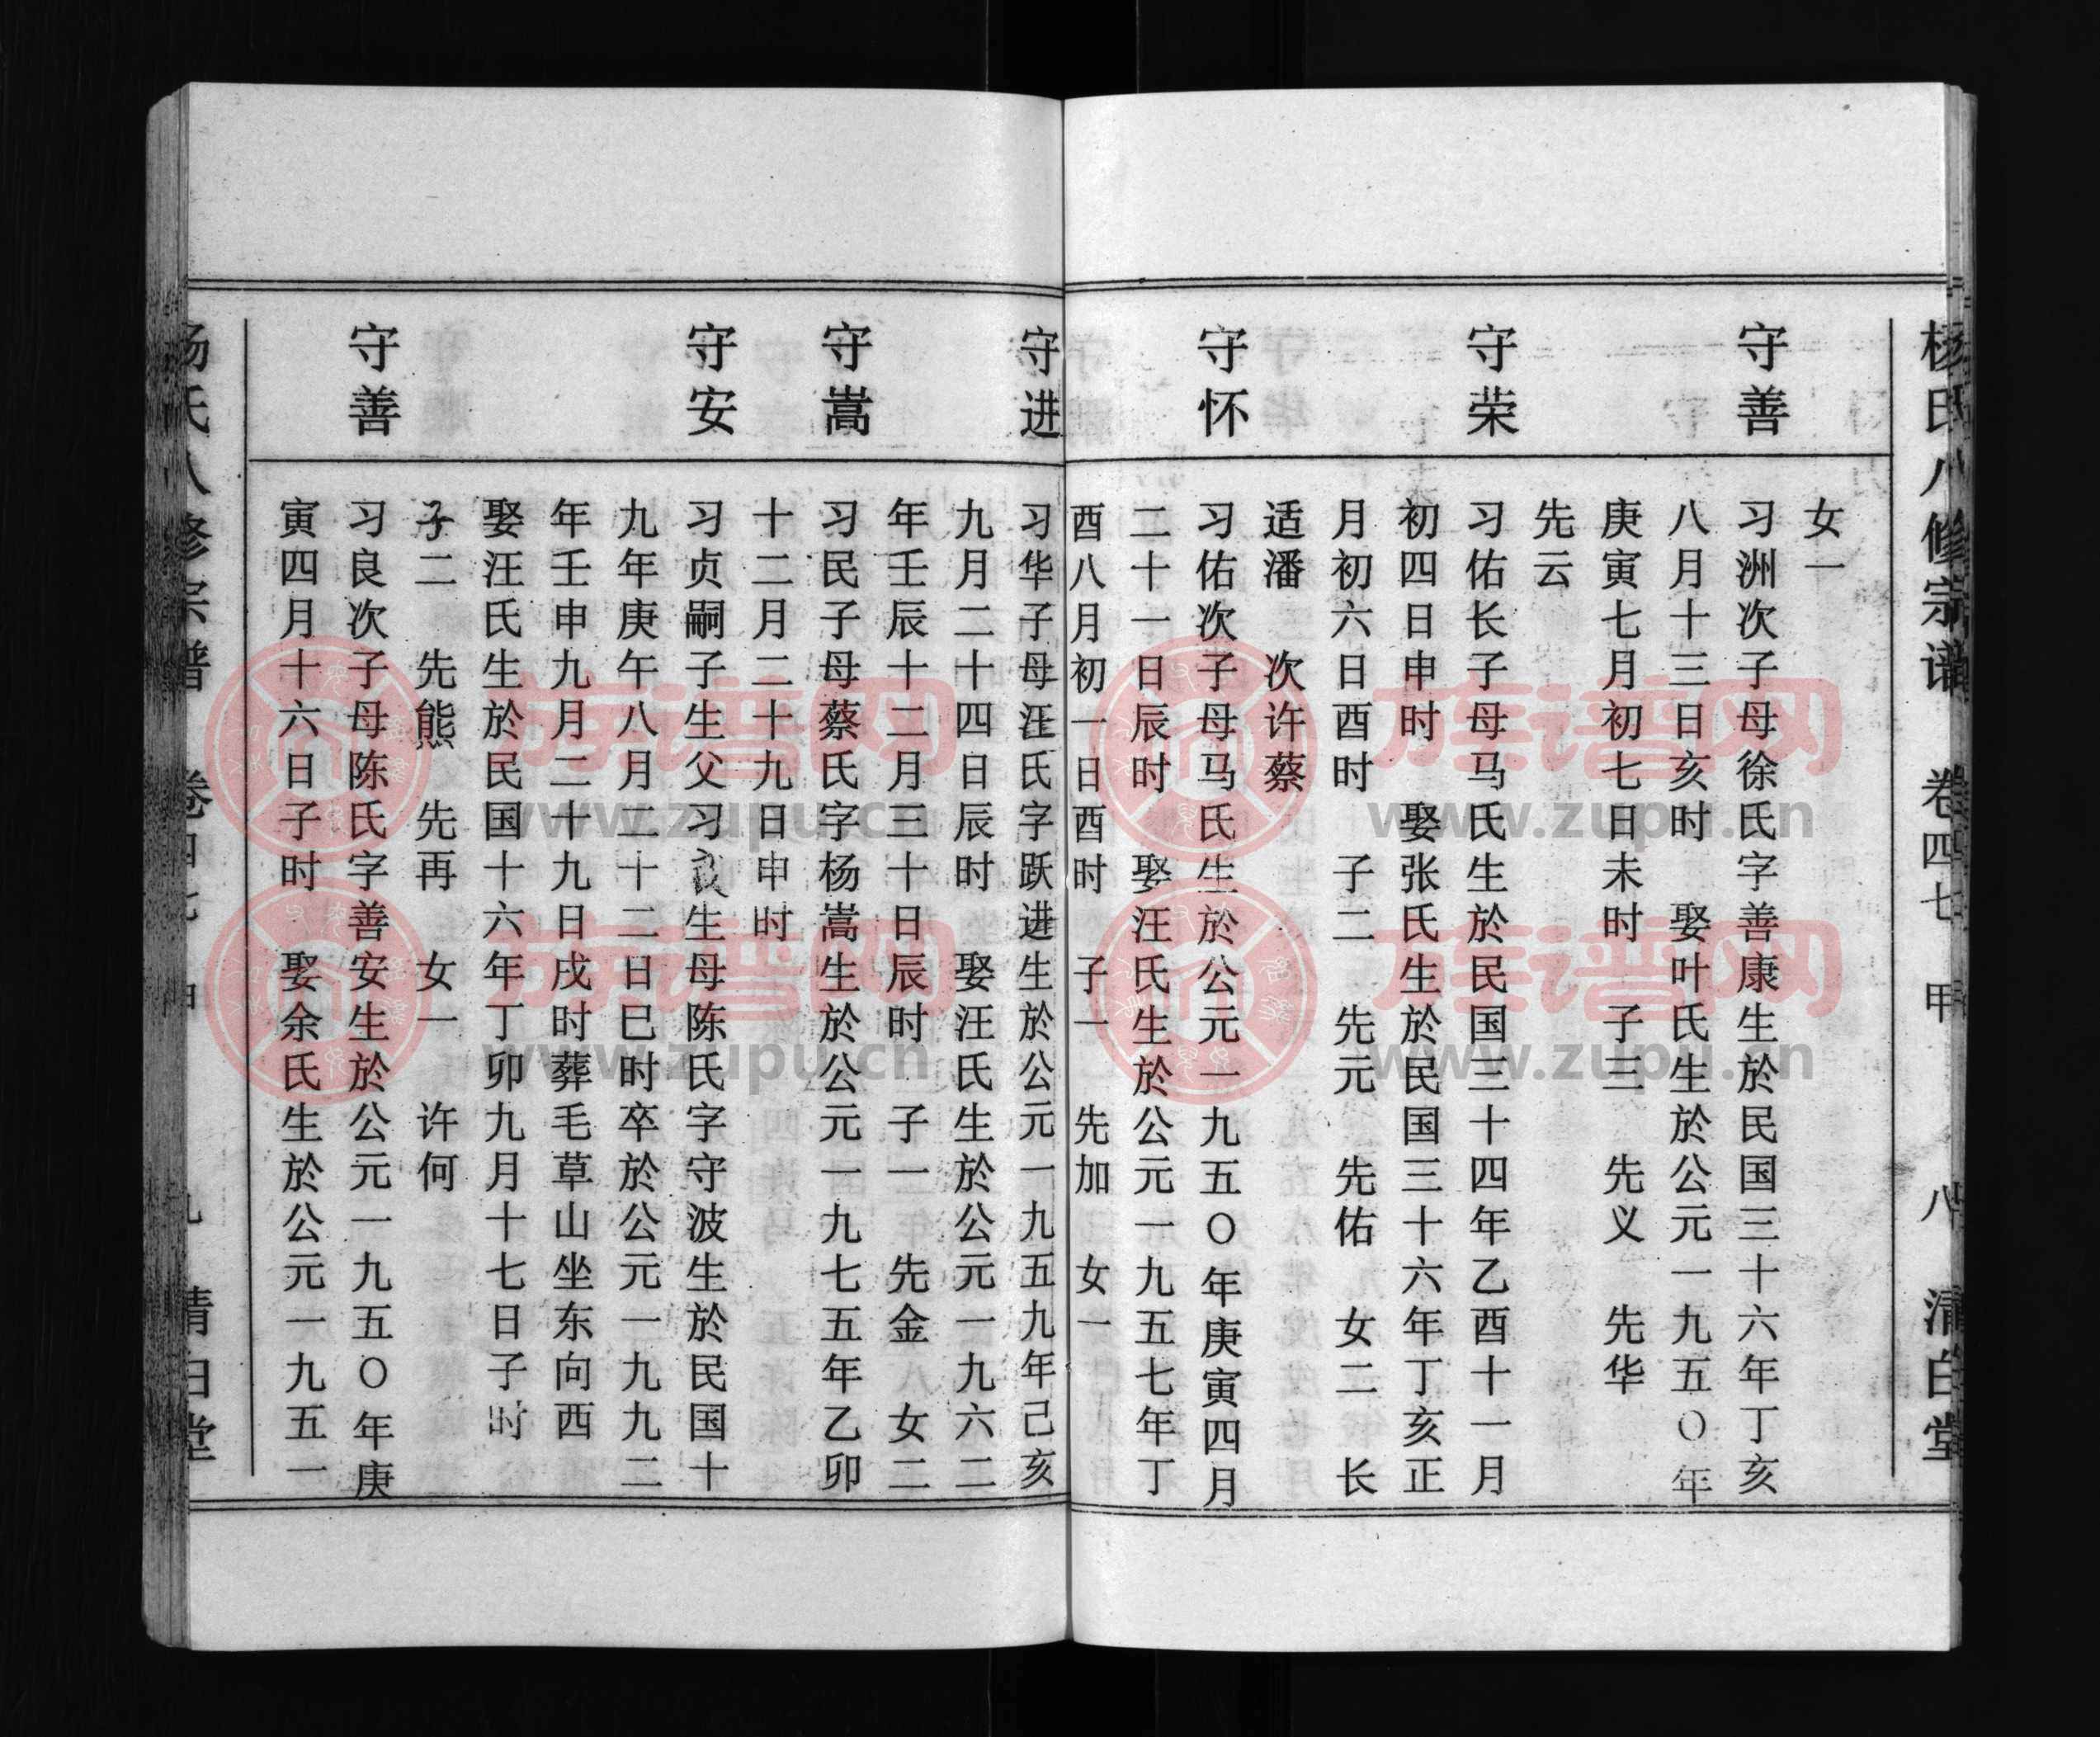 杨氏八修宗谱 卷四七 甲 八 清白堂
女一
守善
习洲次子母徐氏字善康生於民国三十六年丁亥
八月十三日亥时 娶叶氏生於公元一九五〇年
庚寅七月初七日未时 子三 先义 先华
先云
守荣
习佑长子母马氏生於民国三十四年乙酉十一月
初四日申时 娶张氏生於民国三十六年丁亥正
月初六日酉时 子二 先元 先佑 女二 长
适潘 次许蔡
守怀
习佑次子母马氏生於公元一九五〇年庚寅四月
二十一日辰时 娶汪氏生於公元一九五七年丁
酉八月初一日酉时 子一 先加 女一
守进
习华子母汪氏字跃进生於公元一九五九年己亥
九月二十四日辰时 娶汪氏生於公元一九六二
年壬辰十二月三十日辰时 子一 先金 女二
守嵩
习民子母蔡氏字杨嵩生於公元一九七五年乙卯
十二月二十九日申时
守安
习贞嗣子生父习良生母陈氏字守波生於民国十
九年庚午八月二十二日巳时卒於公元一九九二
年壬申九月二十九日戌时葬毛草山坐东向西
娶汪氏生於民国十六年丁卯九月十七日子时
子二 先熊 先再 女一 许何
守善
习良次子母陈氏字善安生於公元一九五〇年庚
寅四月十六日子时 娶余氏生於公元一九五一
杨氏八修宗谱 卷四七 甲 九 清白堂
族谱网
www.zupu.cn
族谱网
www.zupu.cn
族谱网
www.zupu.cn
族谱网
www.zupu.cn